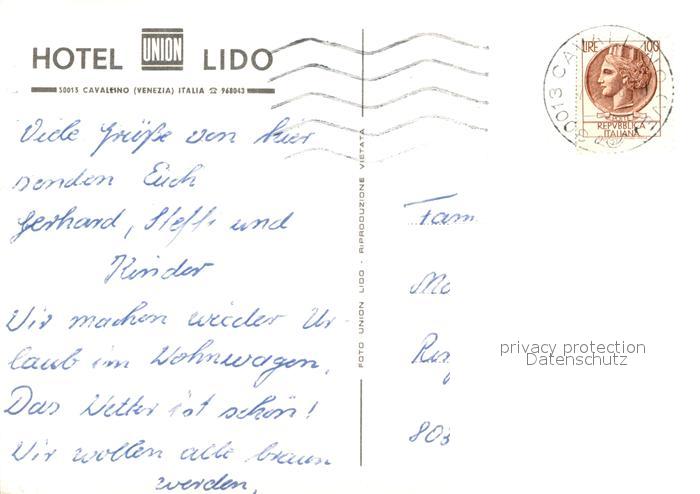 HOTEL UNION LIDO
30013 CAVALLINO (VENEZIA) ITALIA ☎ 968043
Viele Grüße von hier
senden Euch
Gerhard, Steffi und
Kinder
Wir machen wieder Ur-
laub im Wohnwagen.
Das Wetter ist schön!
Wir wollen alle braun
werden.
FOTO UNION LIDO - RIPRODUZIONE VIETATA
LIRE 100
REPVBBLICA
ITALIANA
30013 CAVALLINO
Fam
Mo
803
privacy protection
Datenschutz